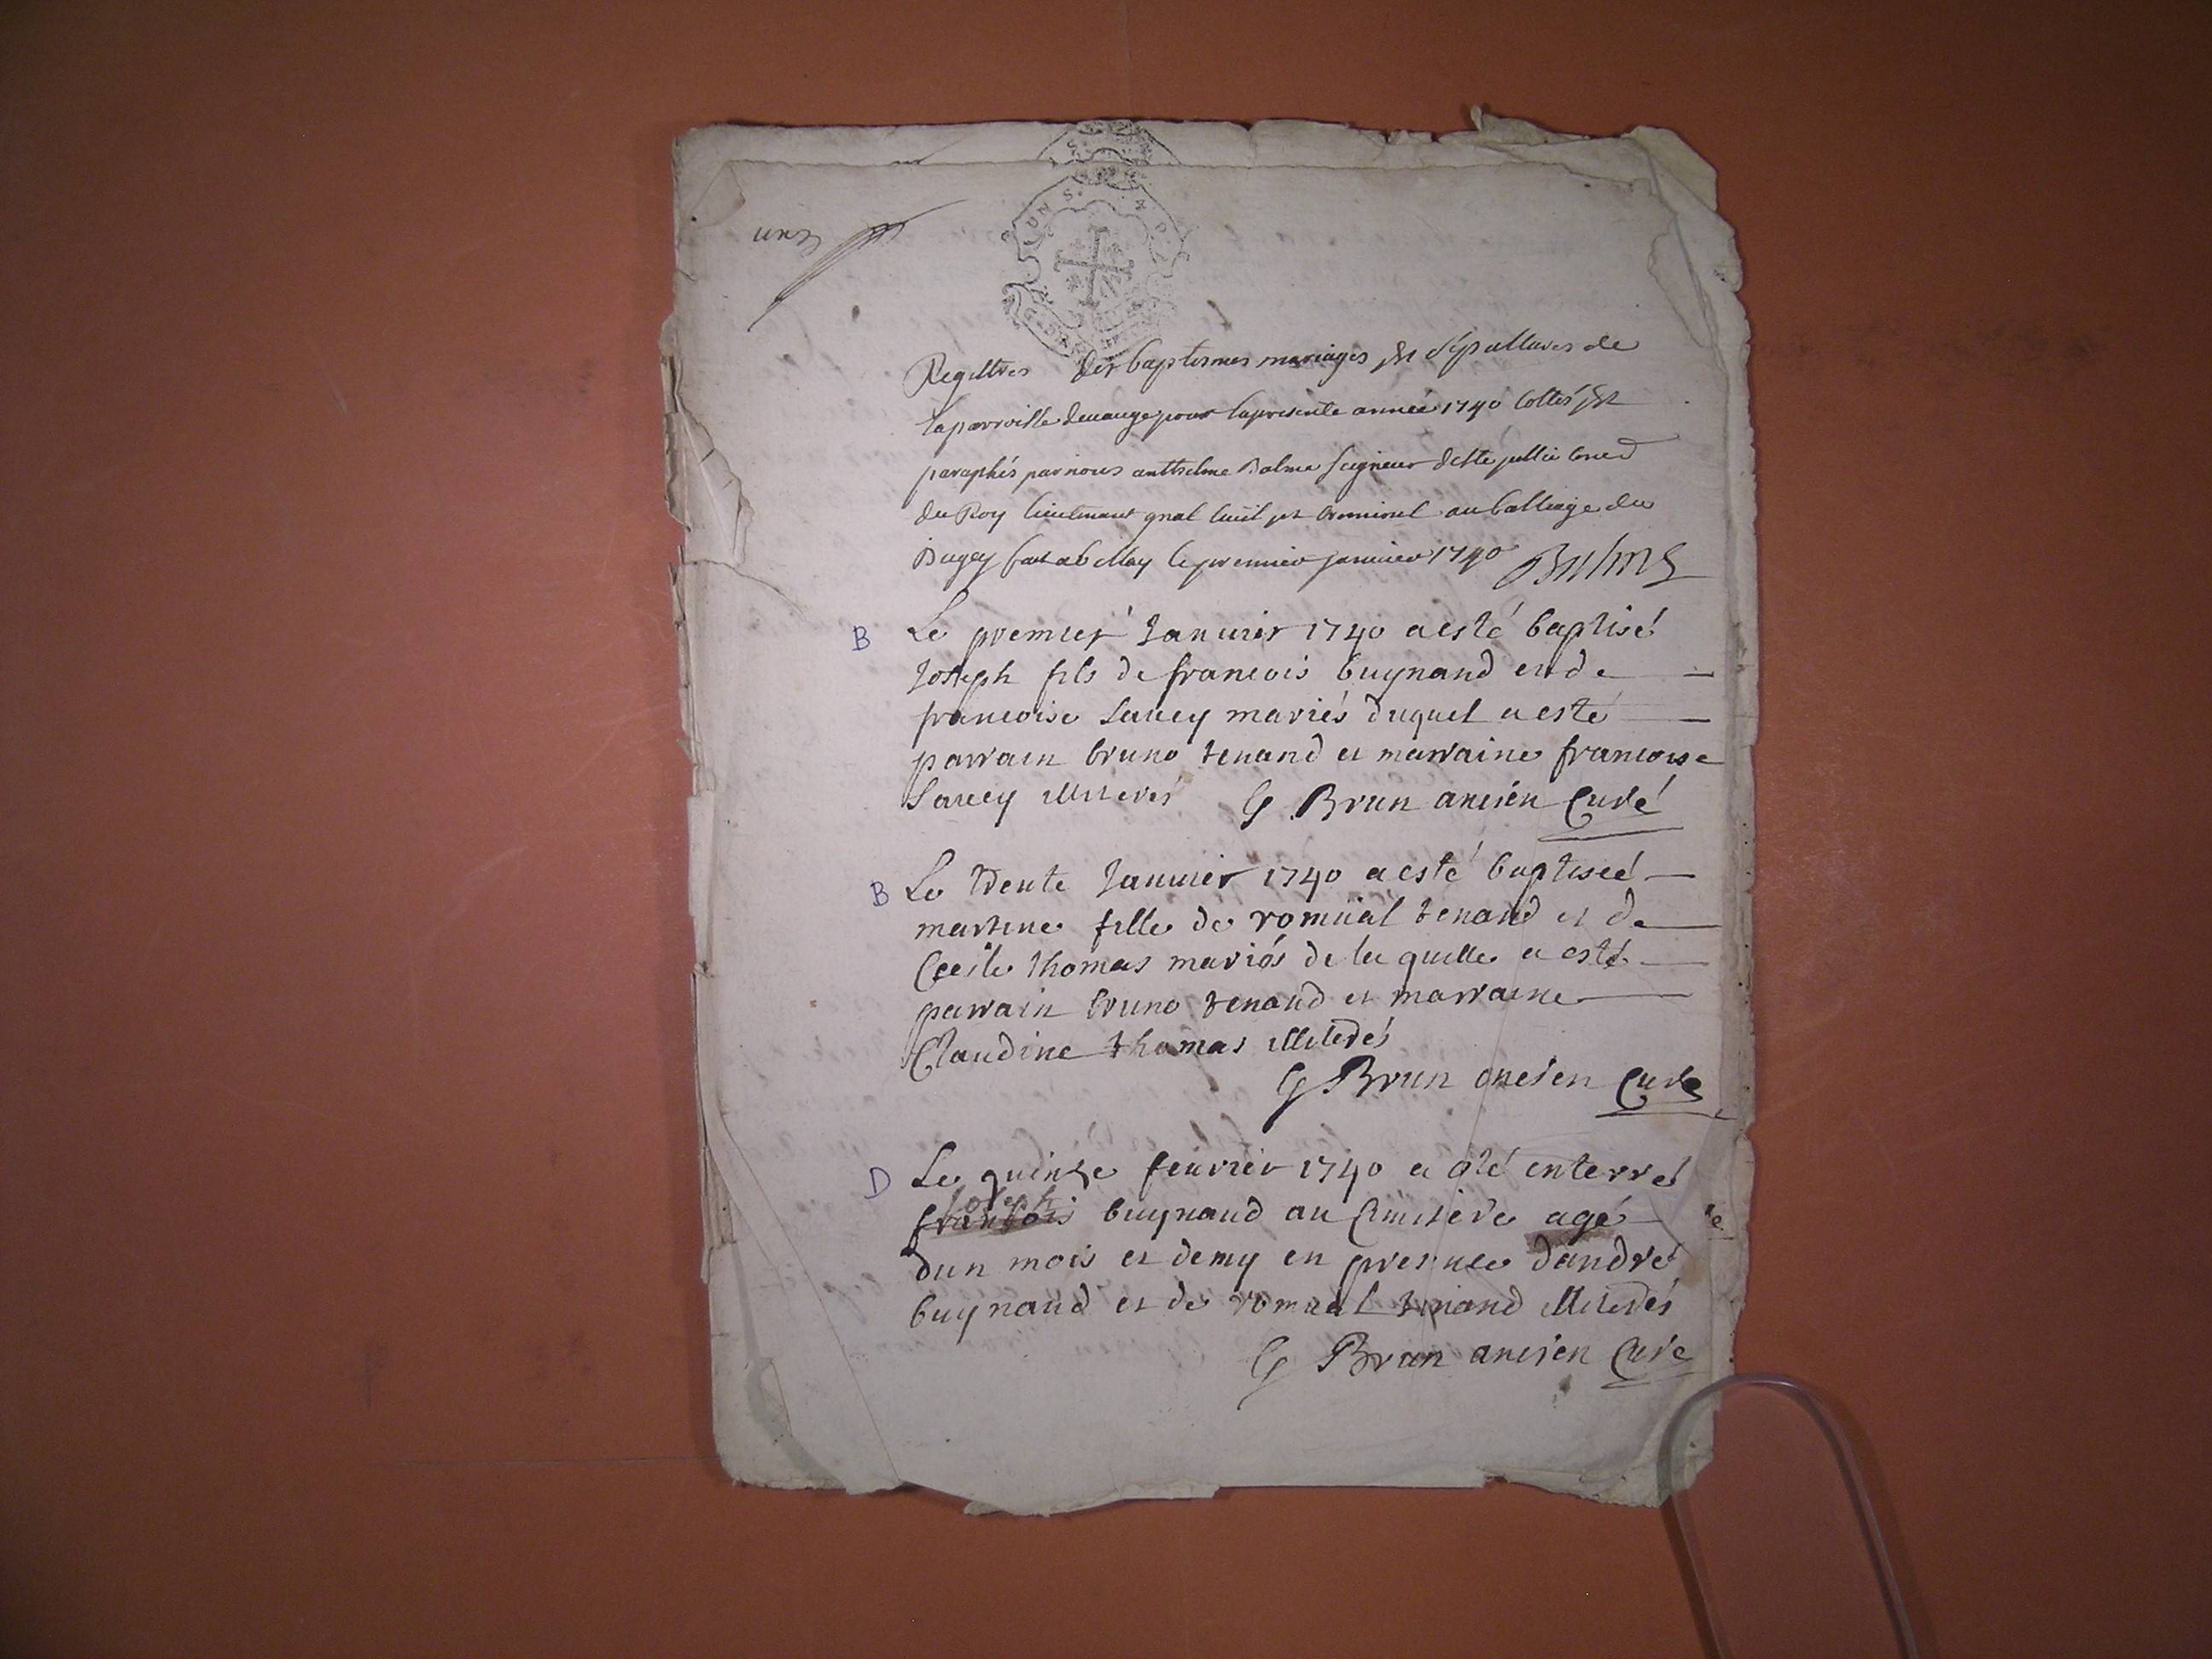 une
Registres des baptesmes mariages et sepultures de
la parroisse deuange pour la presente année 1740 cottés et
paraphés par nous anthelme Balme seigneur de ste jullie
du Roy lieutenant gnal ciuil et criminel au balliage du
Bugey fait a bellay le premier januier 1740 Balme
B Le premier Januier 1740 a esté baptisé
Joseph fils de francois buynand et de
francoise Sarcey mariés duquel a esté
parrain bruno tenand et marraine francoise
Sarcey illiterés G Brun ancien Curé
B Le trente Januier 1740 a esté baptiseé
martine fille de romüal tenand et de
Cecile thomas mariés de la quelle a esté
parrain bruno tenand et marraine
Claudine thomas illiterés
G Brun ancien Curé
D Le quinze feurier 1740 a eté enterré
joseph
francois buynand au Cimitiere agé
dun mois et demy en presence dandré
buynand et de romual tenand illiterés
G Brun ancien Curé